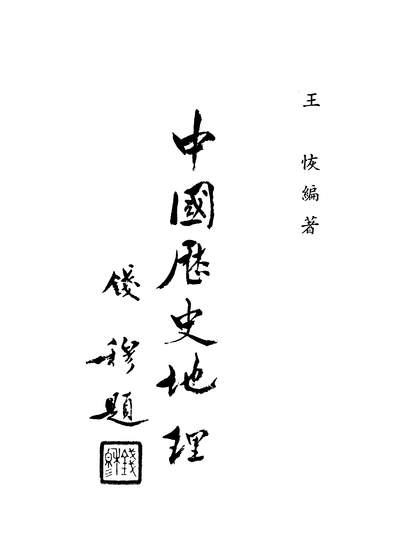 王恢編著
中國歷史地理
錢穆題
錢穆